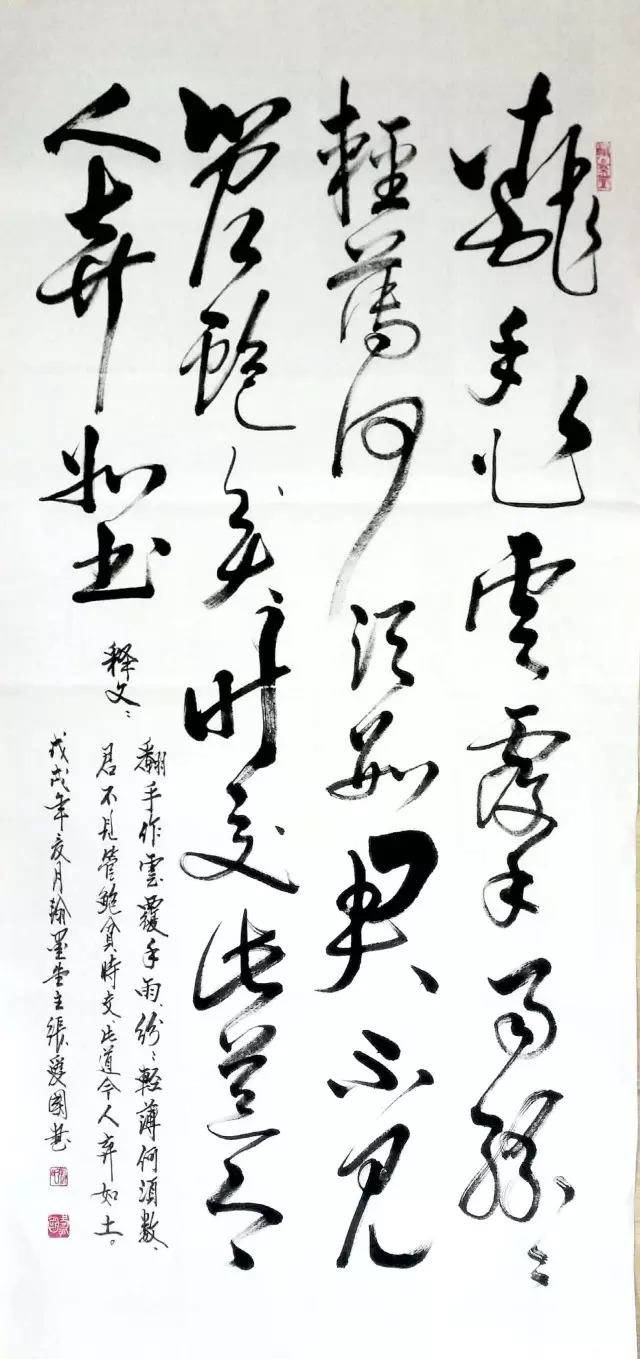 翻手作雲覆手雨紛〻
輕薄何須數君不見
管鮑貧時交此道今
人棄如土
释文：
翻手作雲覆手雨、紛〻輕薄何須數、
君不見管鮑貧時交、此道今人弃如土。
戊戌年亥月翰墨堂主張愛國書